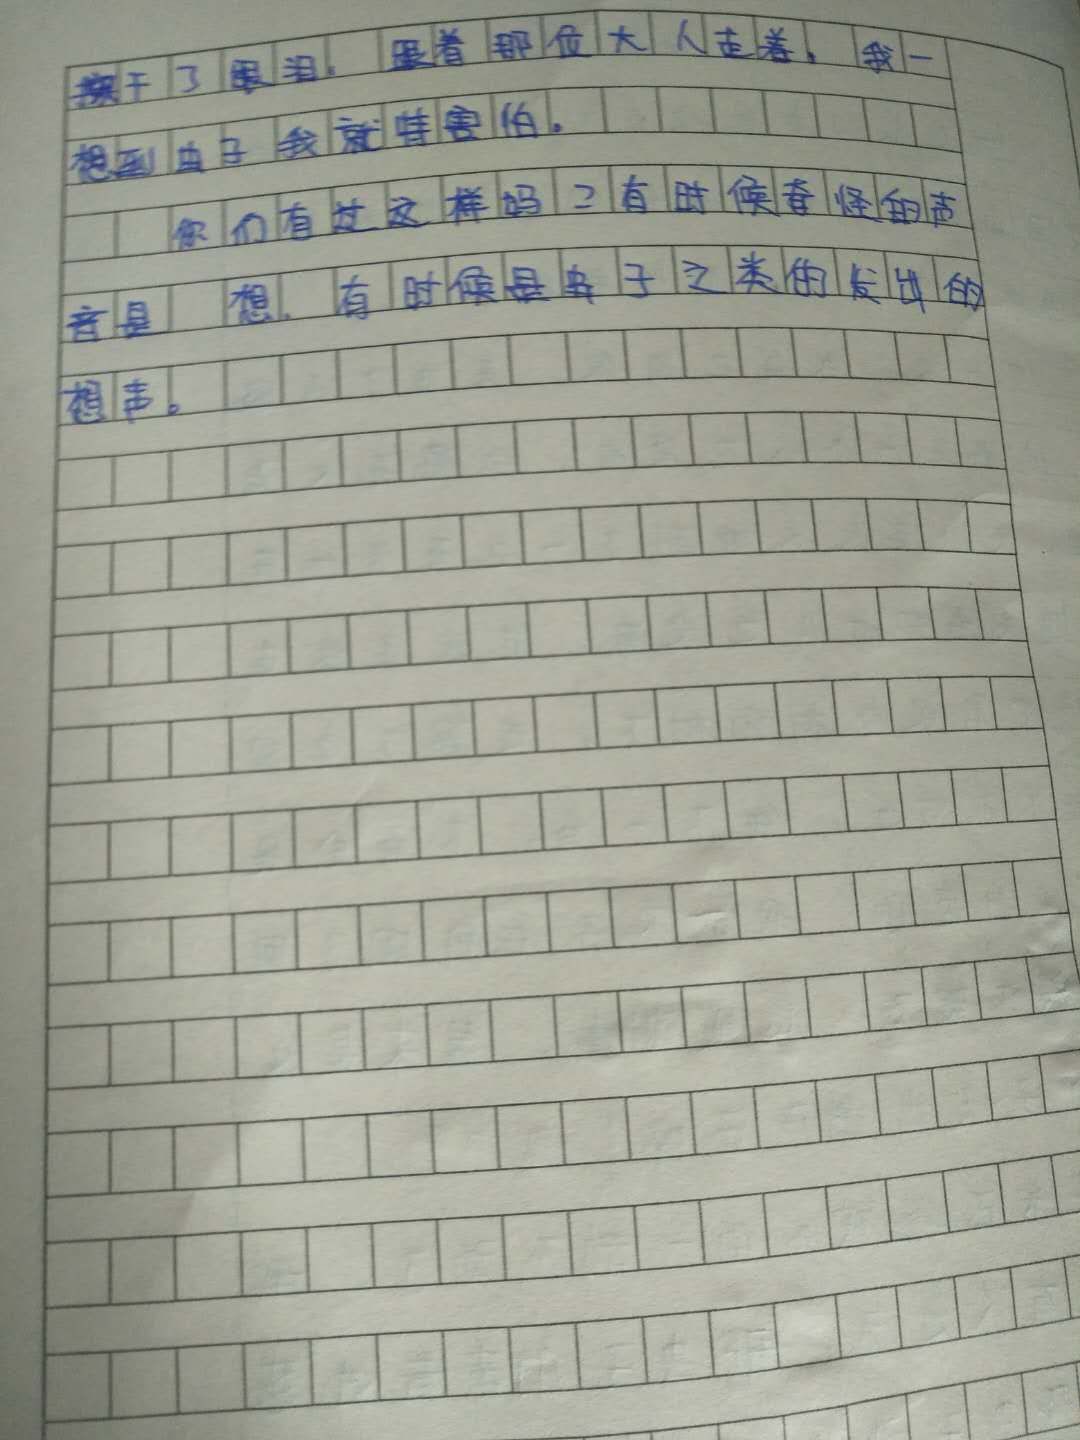 擦干了眼泪。跟着那位大人走着,我一
想到虫子我就特害怕。
你们有过这样吗?有时候奇怪的声
音是 想,有时候是虫子之类的发出的
想声。